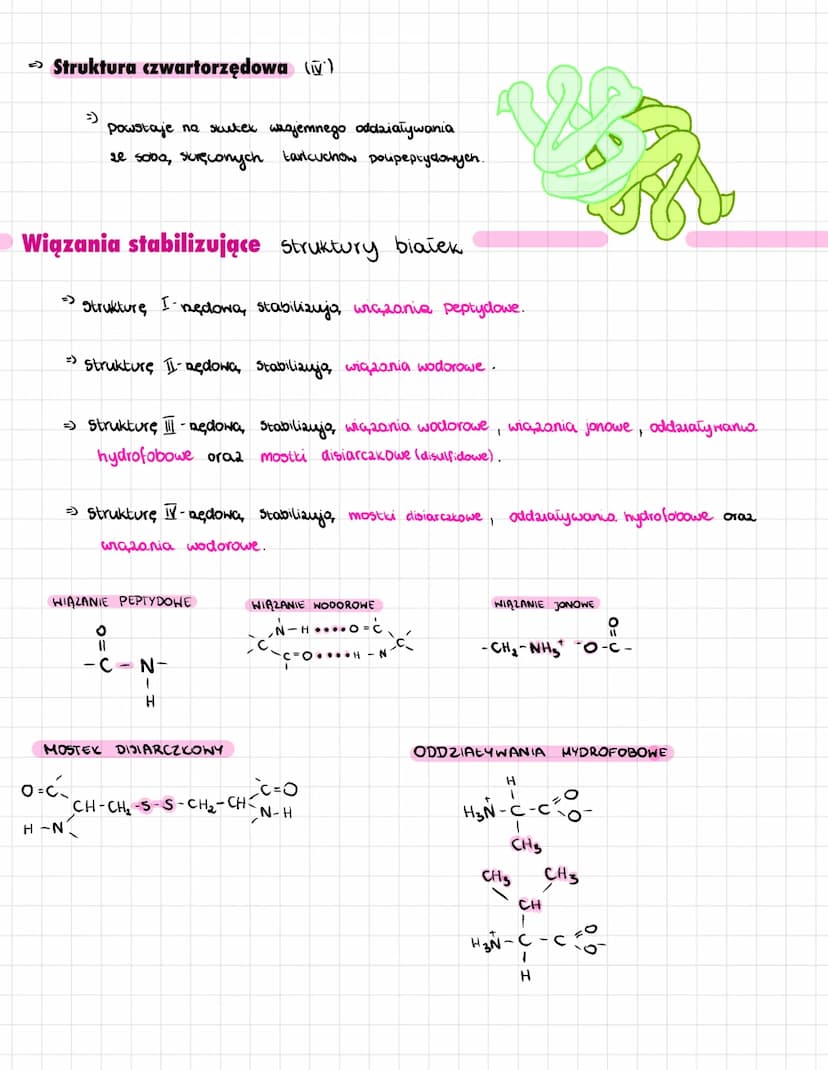 ⇒ Struktura czwartorzędowa (IV°)
⇒ powstaje na skutek wzajemnego oddziaływania
ze sobą skręconych łańcuchów polipeptydowych.
Wiązania stabilizujące struktury białek
⇒ strukturę I-rzędową stabilizują wiązania peptydowe.
⇒ strukturę II-rzędową stabilizują wiązania wodorowe.
⇒ strukturę III-rzędową stabilizują wiązania wodorowe, wiązania jonowe, oddziaływania
hydrofobowe oraz mostki disiarczkowe (disulfidowe).
⇒ strukturę IV-rzędową stabilizują mostki disiarczkowe, oddziaływania hydrofobowe oraz
wiązania wodorowe.
WIĄZANIE PEPTYDOWE
WIĄZANIE WODOROWE
WIĄZANIE JONOWE
O
-C-N-
H
N-H••••O=C
C C
C=O•••••H-N
O
-CH2-NH3+ -O-C-
MOSTEK DISIARCZKOWY
O=C C=O
CH-CH2-S-S-CH2-CH
H-N N-H
ODDZIAŁYWANIA HYDROFOBOWE
H
H3N+-C-C O
O-
CH3
CH3 CH3
CH
H3N+-C-C O
O-
H